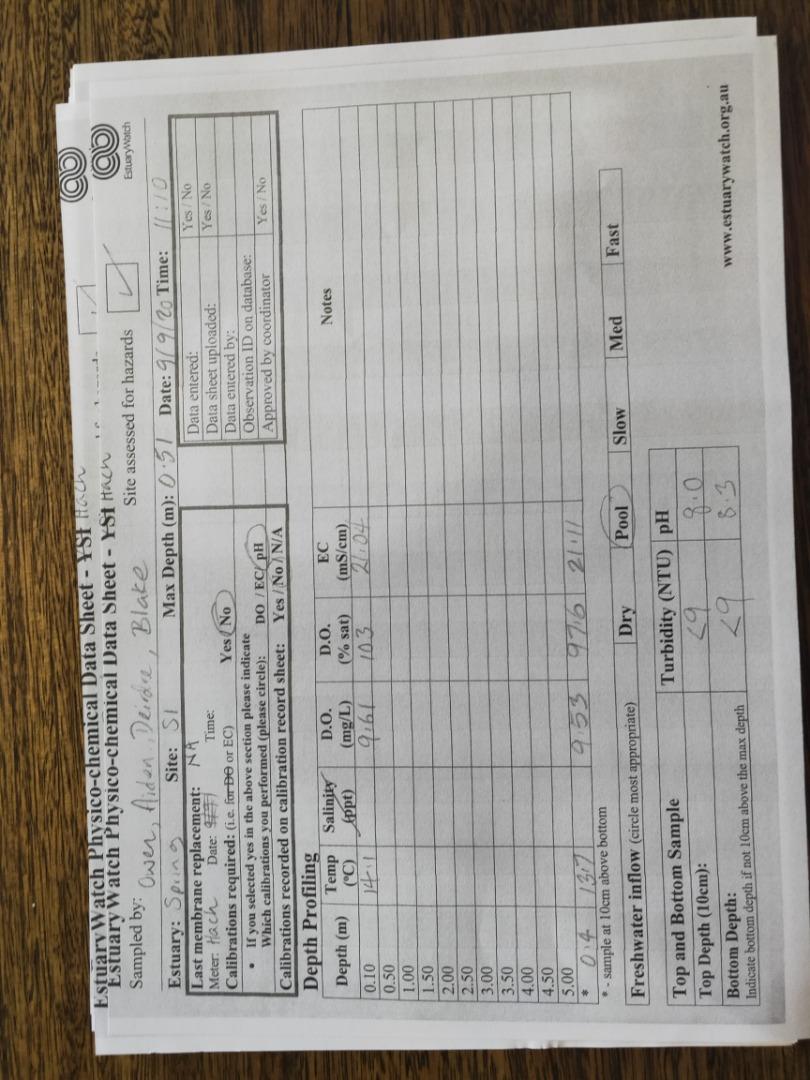 EstuaryWatch Physico-chemical Data Sheet - YSI Hach
EstuaryWatch Physico-chemical Data Sheet - YSI Hach
EstuaryWatch
Sampled by: Owen, Aidan, Deirdre, Blake
Site assessed for hazards
Estuary: Spring Site: S1 Max Depth (m): 0.51 Date: 9/9/20 Time: 11:10
Last membrane replacement: NA
Meter: Hach Date: Time:
Calibrations required: (i.e. for DO or EC) Yes / No
• If you selected yes in the above section please indicate
Which calibrations you performed (please circle): DO / EC / pH
Calibrations recorded on calibration record sheet: Yes / No / N/A
Data entered: Yes / No
Data sheet uploaded: Yes / No
Data entered by:
Observation ID on database:
Approved by coordinator Yes / No
Depth Profiling
Depth (m) Temp (°C) Salinity (ppt) D.O. (mg/L) D.O. (% sat) EC (mS/cm) Notes
0.10 14.1 9.61 103 21.04
0.50
1.00
1.50
2.00
2.50
3.00
3.50
4.00
4.50
5.00
* 0.4 13.7 9.53 97.6 21.11
* - sample at 10cm above bottom
Freshwater inflow (circle most appropriate) Dry Pool Slow Med Fast
Top and Bottom Sample Turbidity (NTU) pH
Top Depth (10cm): <9 8.0
Bottom Depth: <9 8.3
Indicate bottom depth if not 10cm above the max depth
www.estuarywatch.org.au